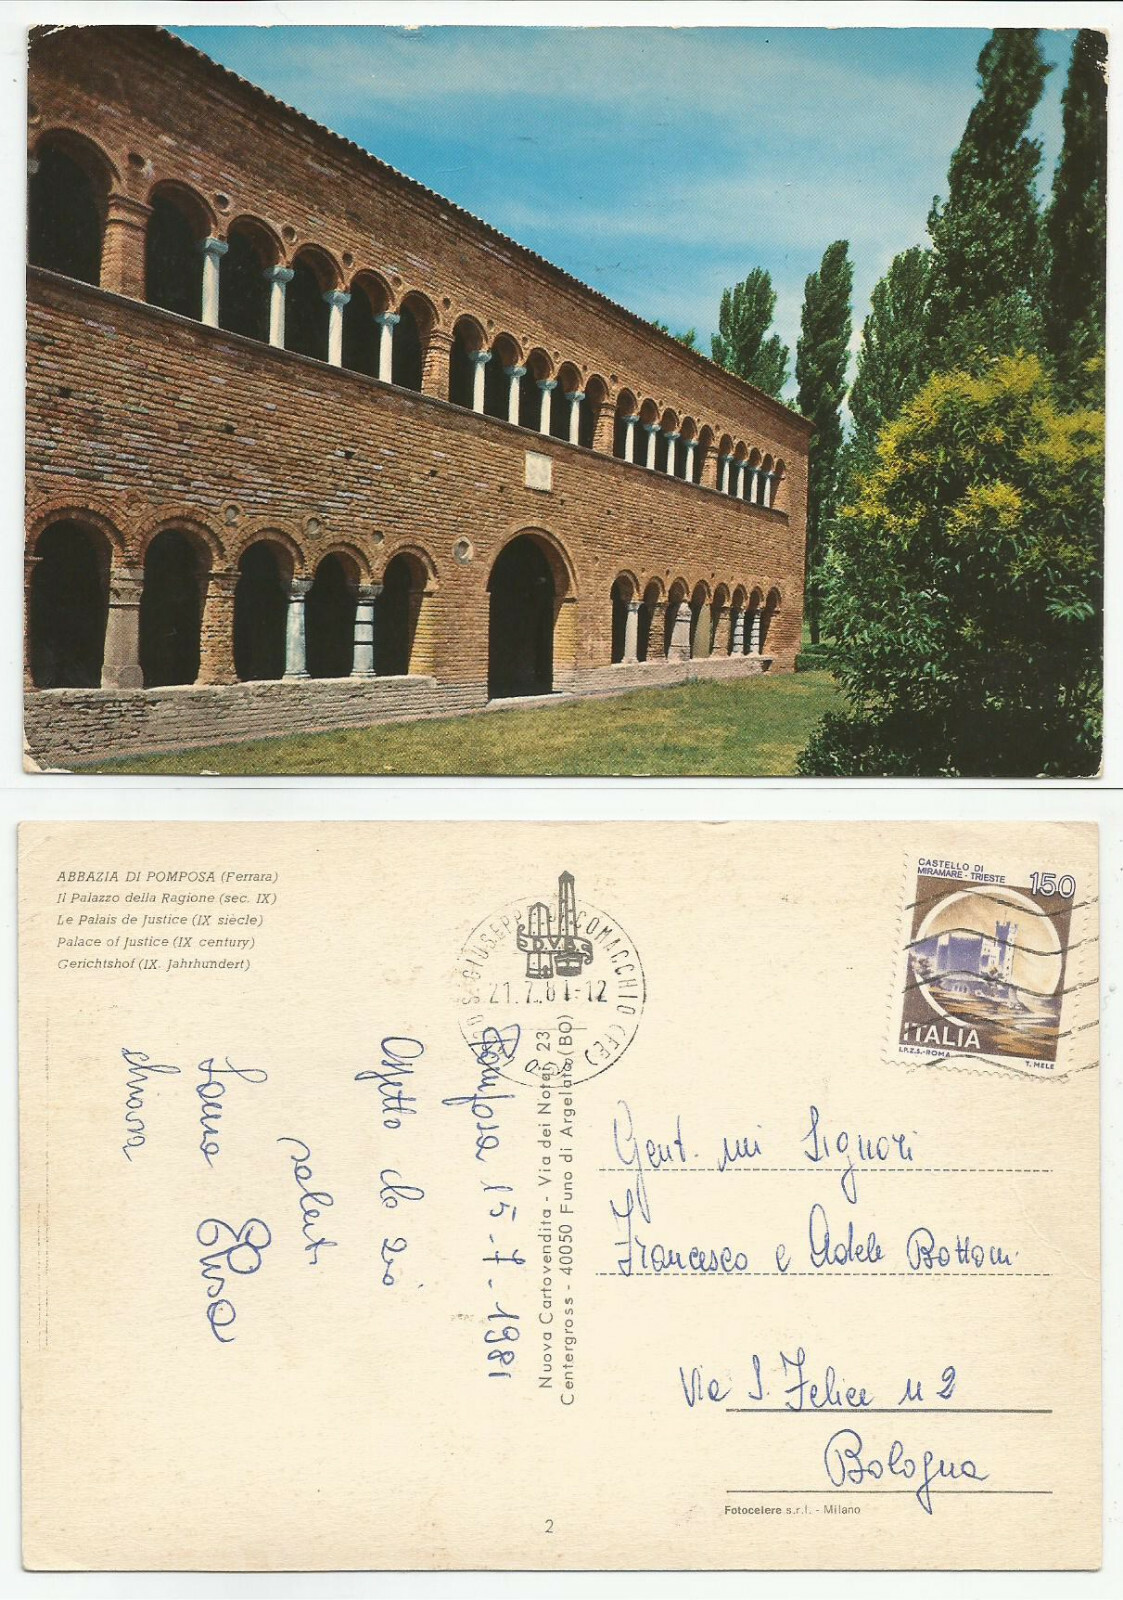 ABBAZIA DI POMPOSA (Ferrara)
Il Palazzo della Ragione (sec. IX)
Le Palais de Justice (IX siècle)
Palace of Justice (IX century)
Gerichtshof (IX. Jahrhundert)
D.V.B.
S. GIUSEPPE DI COMACCHIO (FE)
21.7.81-12
CASTELLO DI
MIRAMARE - TRIESTE
150
ITALIA
I.P.Z.S. - ROMA
T. MELE
Pomposa 15-7-1981
saluti
Nuova Cartovendita - Via dei Notai, 23
Centergross - 40050 Funo di Argelato (BO)
Gent.mi Signori
Francesco e Adele Bottoni
Via S. Felice n 2
Bologna
Fotocelere s.r.l. - Milano
2